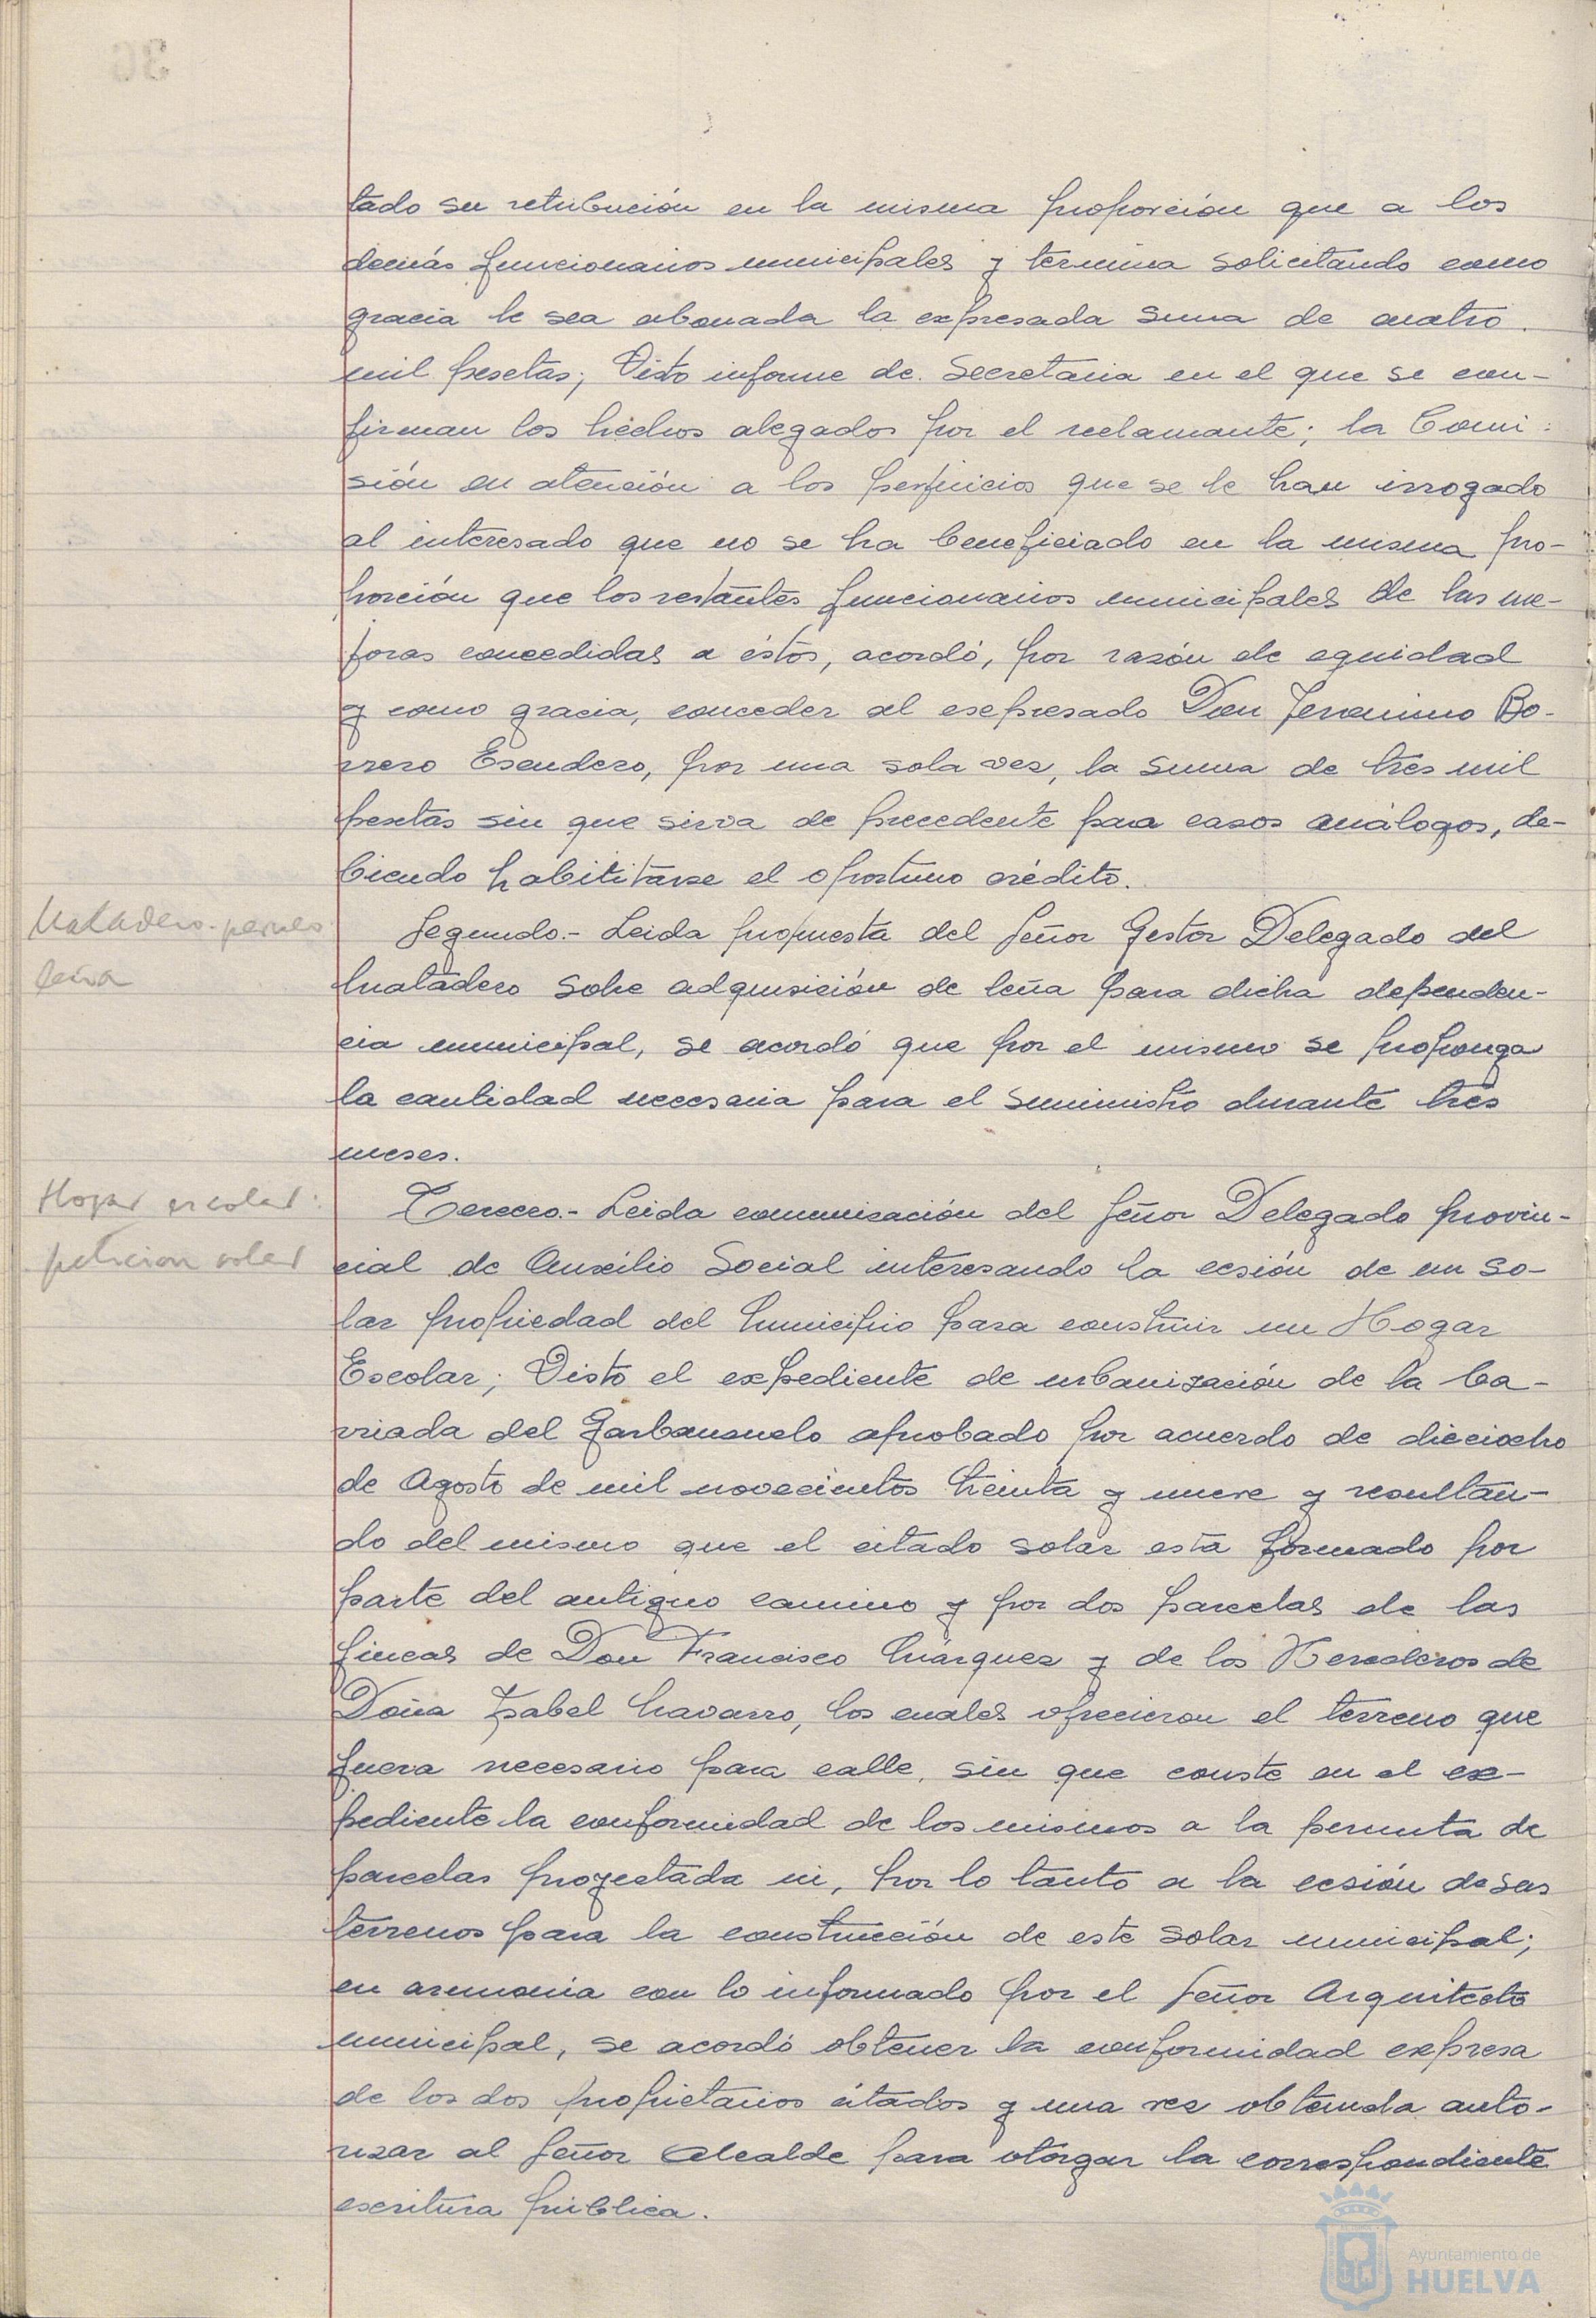 tado su retribución en la misma proporción que a los
demás funcionarios municipales y termina solicitando como
gracia le sea abonada la expresada suma de cuatro
mil pesetas; Visto informe de Secretaria en el que se con-
firman los hechos alegados por el reclamante; la Comi-
sión en atención a los perjuicios que se le han irrogado
al interesado que no se ha beneficiado en la misma pro-
porción que los restantes funcionarios municipales de las me-
joras concedidas a éstos, acordó, por razón de equidad
y como gracia, conceder al expresado Don Jeronimo Bo-
rrero Escudero, por una sola vez, la suma de tres mil
pesetas sin que sirva de precedente para casos análogos, de-
biendo habilitarse el oportuno crédito.
Matadero.
leña
Segundo.- Leida propuesta del Señor Gestor Delegado del
Matadero sobre adquisición de leña para dicha dependen-
cia municipal, se acordó que por el mismo se proponga
la cantidad necesaria para el suministro durante tres
meses.
Hogar escolar:
peticion solar
Tercero.- Leida comunicación del Señor Delegado provin-
cial de Auxilio Social interesando la cesión de un so-
lar propiedad del Municipio para construir un Hogar
Escolar; Visto el expediente de urbanización de la ba-
rriada del Garbanzuelo aprobado por acuerdo de dieciocho
de Agosto de mil novecientos treinta y nueve y resultan-
do del mismo que el citado solar está formado por
parte del antiguo camino y por dos parcelas de las
fincas de Don Francisco Márquez y de los Herederos de
Doña Isabel Navarro, los cuales ofrecieron el terreno que
fuera necesario para calle, sin que conste en el ex-
pediente la conformidad de los mismos a la permuta de
parcelas proyectada ni, por lo tanto a la cesión de sus
terrenos para la construcción de este solar municipal;
en armonia con lo informado por el Señor Arquitecto
municipal, se acordó obtener la conformidad expresa
de los dos propietarios citados y una vez obtenida auto-
rizar al Señor Alcalde para otorgar la correspondiente
escritura pública.
Ayuntamiento de
HUELVA